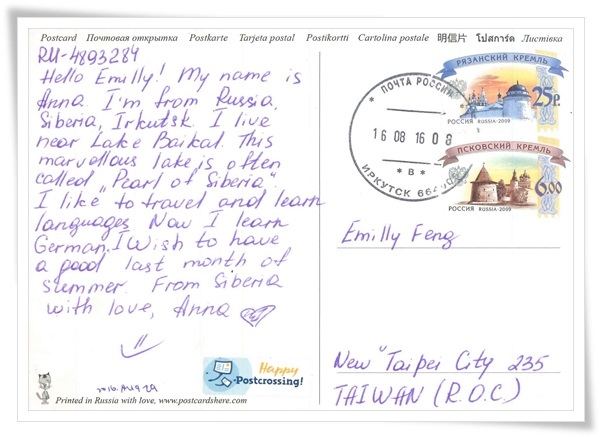 Postcard Почтовая открытка Postkarte Tarjeta postal Postikortti Cartolina postale 明信片 โปสการ์ด Листівка
RU-4893284
Hello Emilly! My name is
Anna. I'm from Russia,
Siberia, Irkutsk. I live
near Lake Baikal. This
marvellous lake is often
called „Pearl of Siberia".
I like to travel and learn
languages. Now I learn
German. I Wish to have
a good last month of
summer. From Siberia
with love, Anna
2016. AUG 29
Happy
Postcrossing!
Printed in Russia with love, www.postcardshere.com
РЯЗАНСКИЙ КРЕМЛЬ
25р.
РОССИЯ RUSSIA·2009
ПСКОВСКИЙ КРЕМЛЬ
6.00
РОССИЯ RUSSIA·2009
ПОЧТА РОССИИ
16 08 16 08
* В *
ИРКУТСК
Emilly Feng
New Taipei City 235
TAIWAN (R.O.C.)